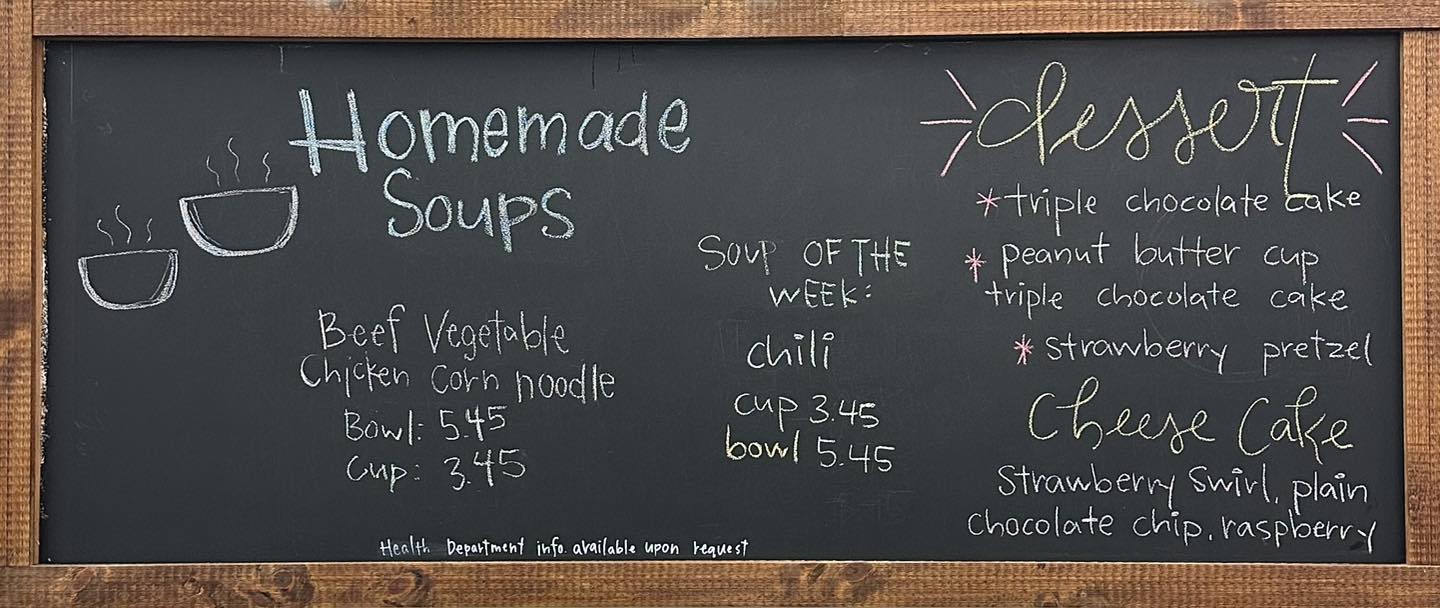 Homemade
Soups
Beef Vegetable
Chicken Corn noodle
Bowl: 5.45
Cup: 3.45
Soup OF THE
WEEK:
chili
cup 3.45
bowl 5.45
dessert
*triple chocolate cake
* peanut butter cup
triple chocolate cake
* strawberry pretzel
Cheese Cake
Strawberry Swirl, plain
Chocolate chip, raspberry
Health Department info. available upon request